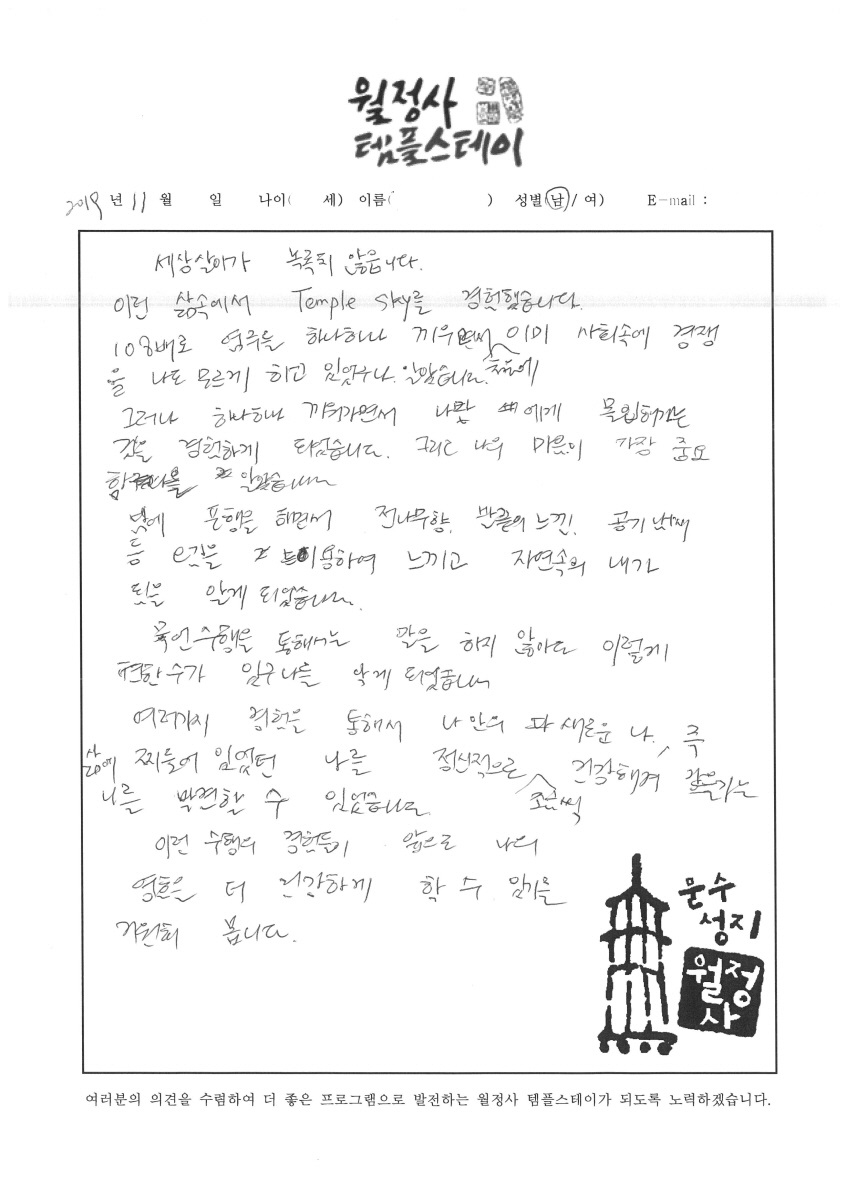 월정사
템플스테이
2019 년 11 월 일 나이( 세) 이름( ) 성별(남/여) E-mail :
세상살이가 녹록치 않읍니다.
이런 삶속에서 Temple stay를 경험했습니다.
108배로 염주를 하나하나 끼우면서 처음에 이미 사회속에 경쟁
을 나도 모르게 하고 있었구나. 알았습니다.
그러나 하나하나 끼워가면서 나만 에게 몰입해가는
것을 경험하게 되었습니다. 그리고 나의 마음이 가장 중요
함 알았습니다
포행을 하면서 전나무향, 반끌의 느낌, 공기 냄새
등 이용하여 느끼고 자연속의 내가
됨을 알게 되었습니다.
묵언수행을 통해서는 말을 하지 않아도 이렇게
편할수가 있구나를 알게 되었습니다
여러가지 경험을 통해서 나 안의 또 새로운 나, 즉
삶에 찌들어 있었던 나를 정신적으로 조금씩 건강해져
나를 발견할 수 있었습니다.
이런 수행의 경험들이 앞으로 나의
영혼을 더 건강하게 할 수 있기를
기원해 봅니다.
문수
성지
월정
사
여러분의 의견을 수렴하여 더 좋은 프로그램으로 발전하는 월정사 템플스테이가 되도록 노력하겠습니다.